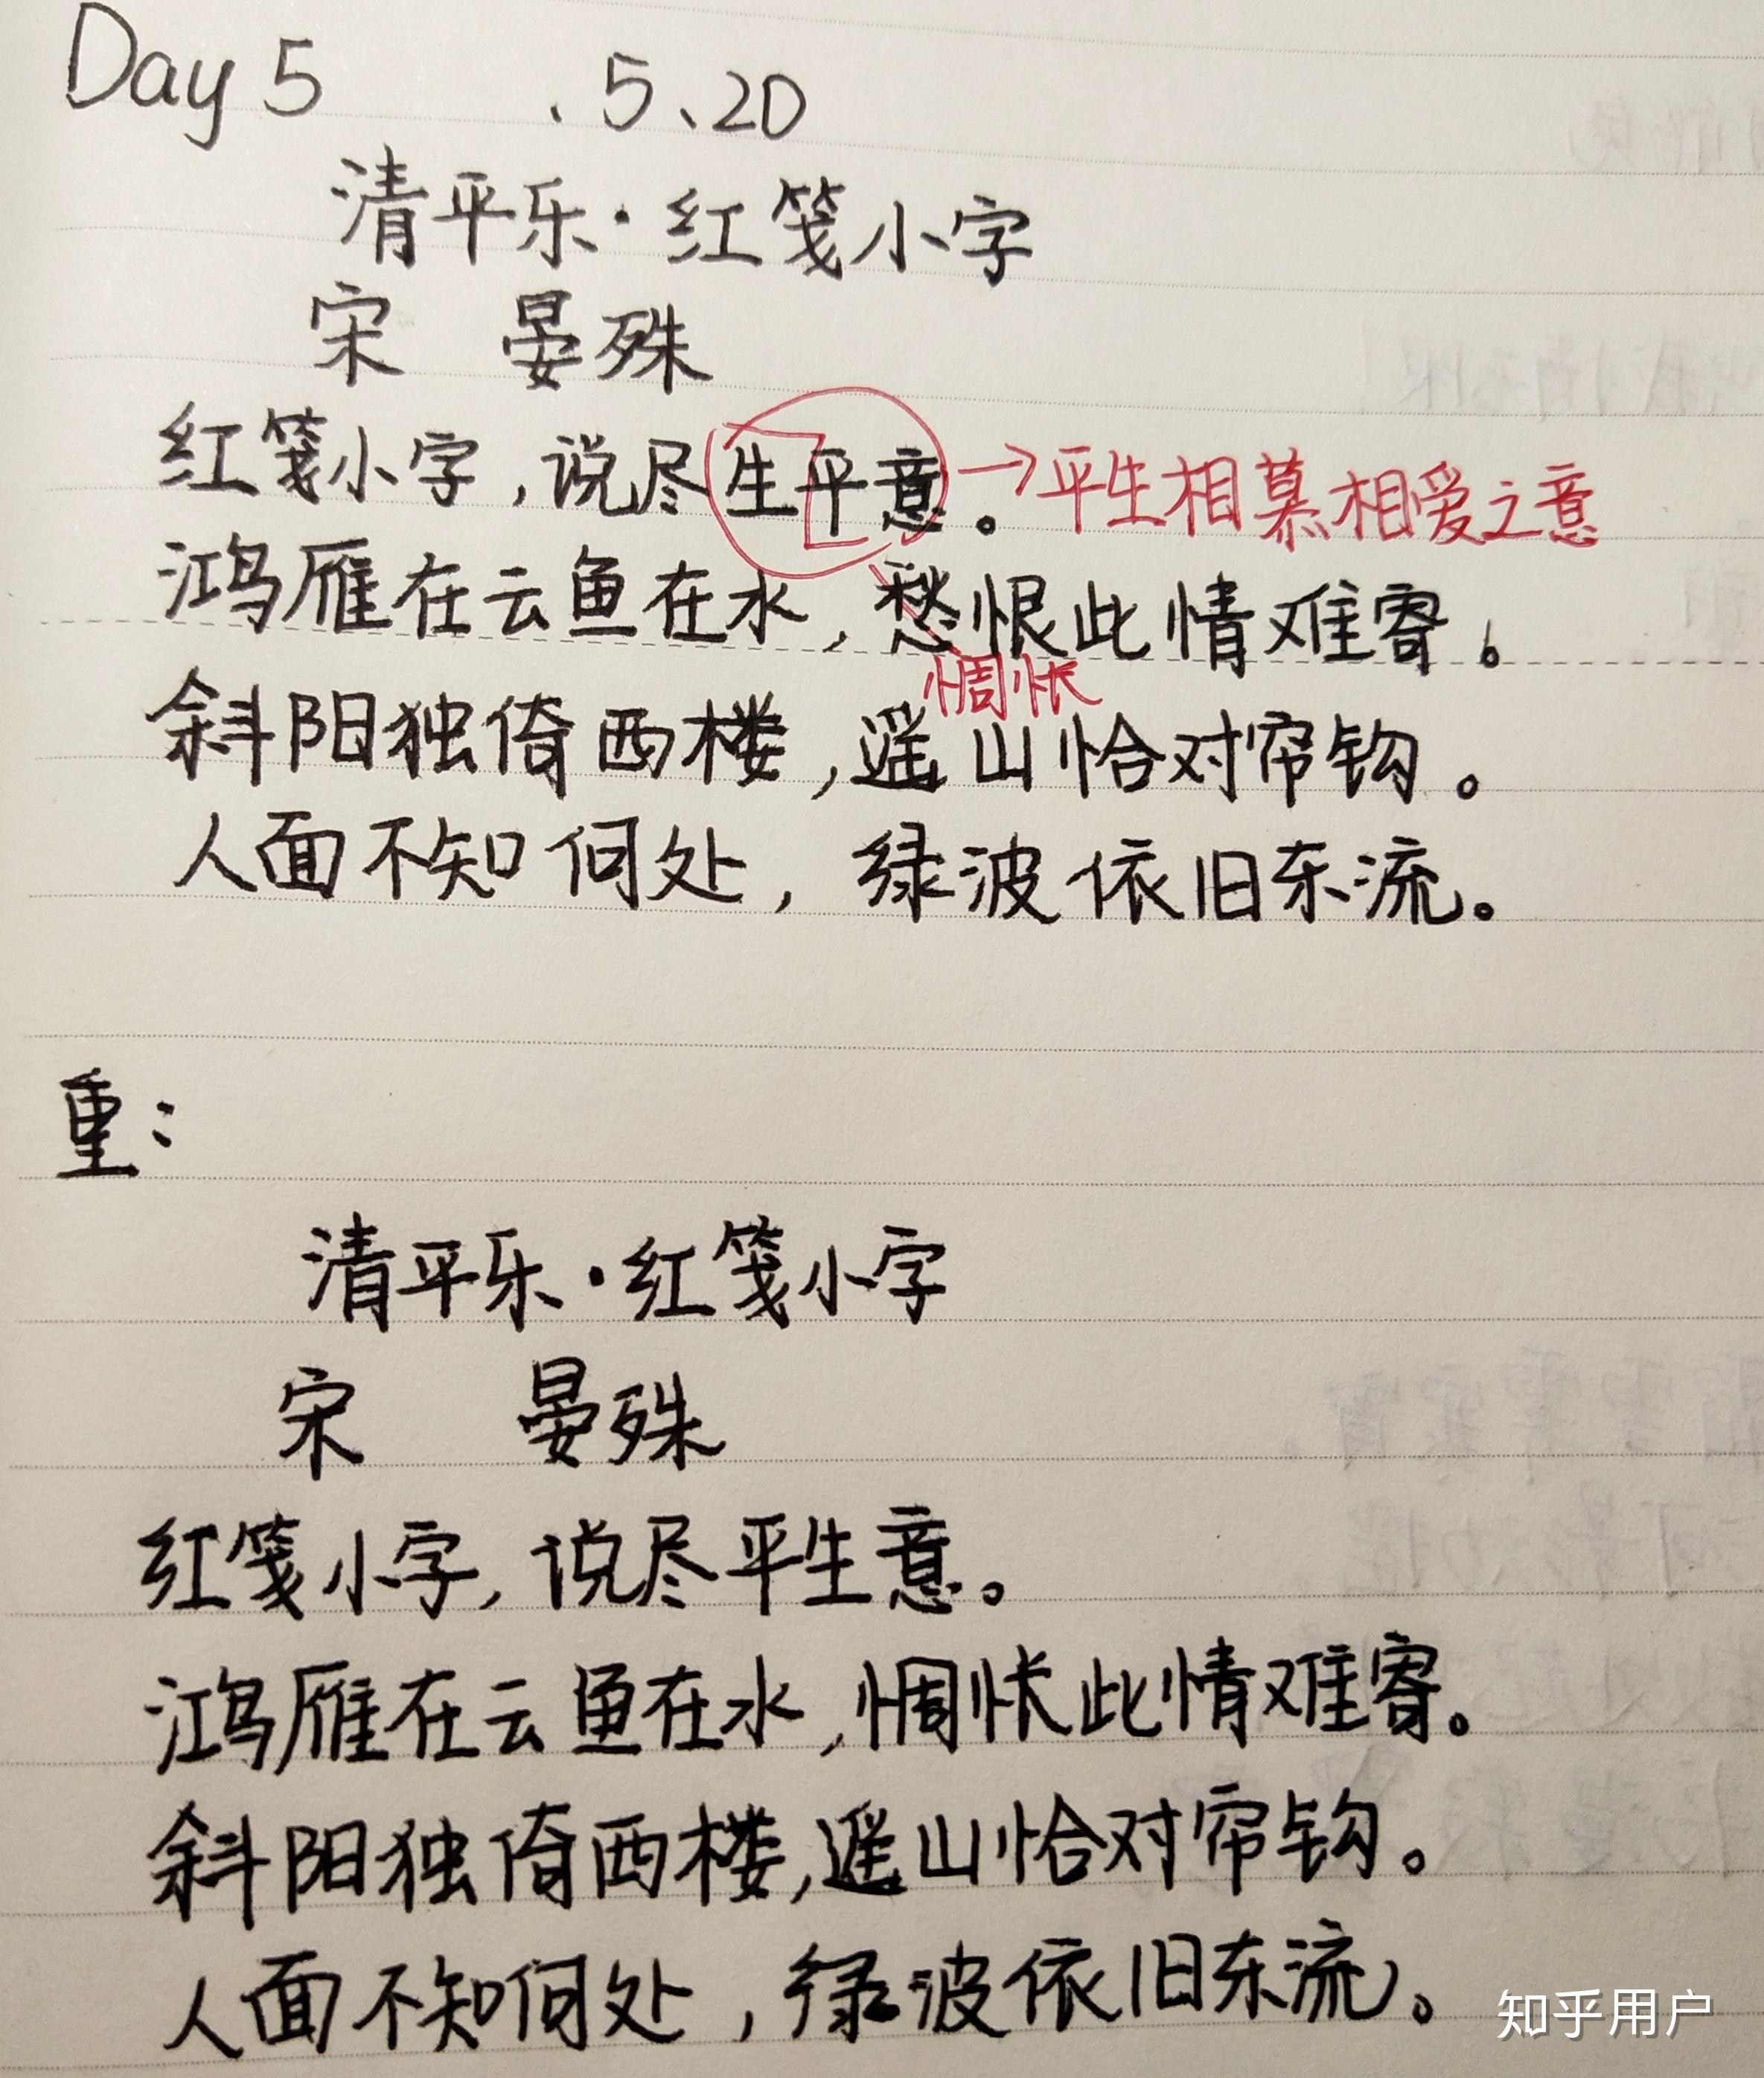 Day 5 、5、20
清平乐·红笺小字
宋 晏殊
红笺小字,说尽生平意。→平生相慕相爱之意
鸿雁在云鱼在水,愁恨此情难寄。
惆怅
斜阳独倚西楼,遥山恰对帘钩。
人面不知何处,绿波依旧东流。
重:
清平乐·红笺小字
宋 晏殊
红笺小字,说尽平生意。
鸿雁在云鱼在水,惆怅此情难寄。
斜阳独倚西楼,遥山恰对帘钩。
人面不知何处,绿波依旧东流。
知乎用户